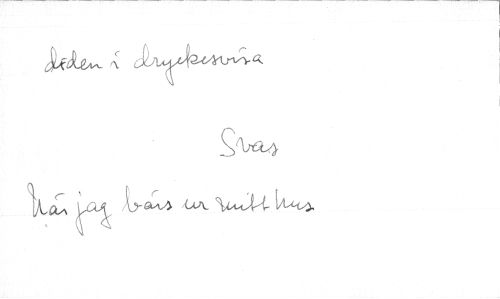 döden i dryckesvisa
Svas
När jag bärs ur mitt hus